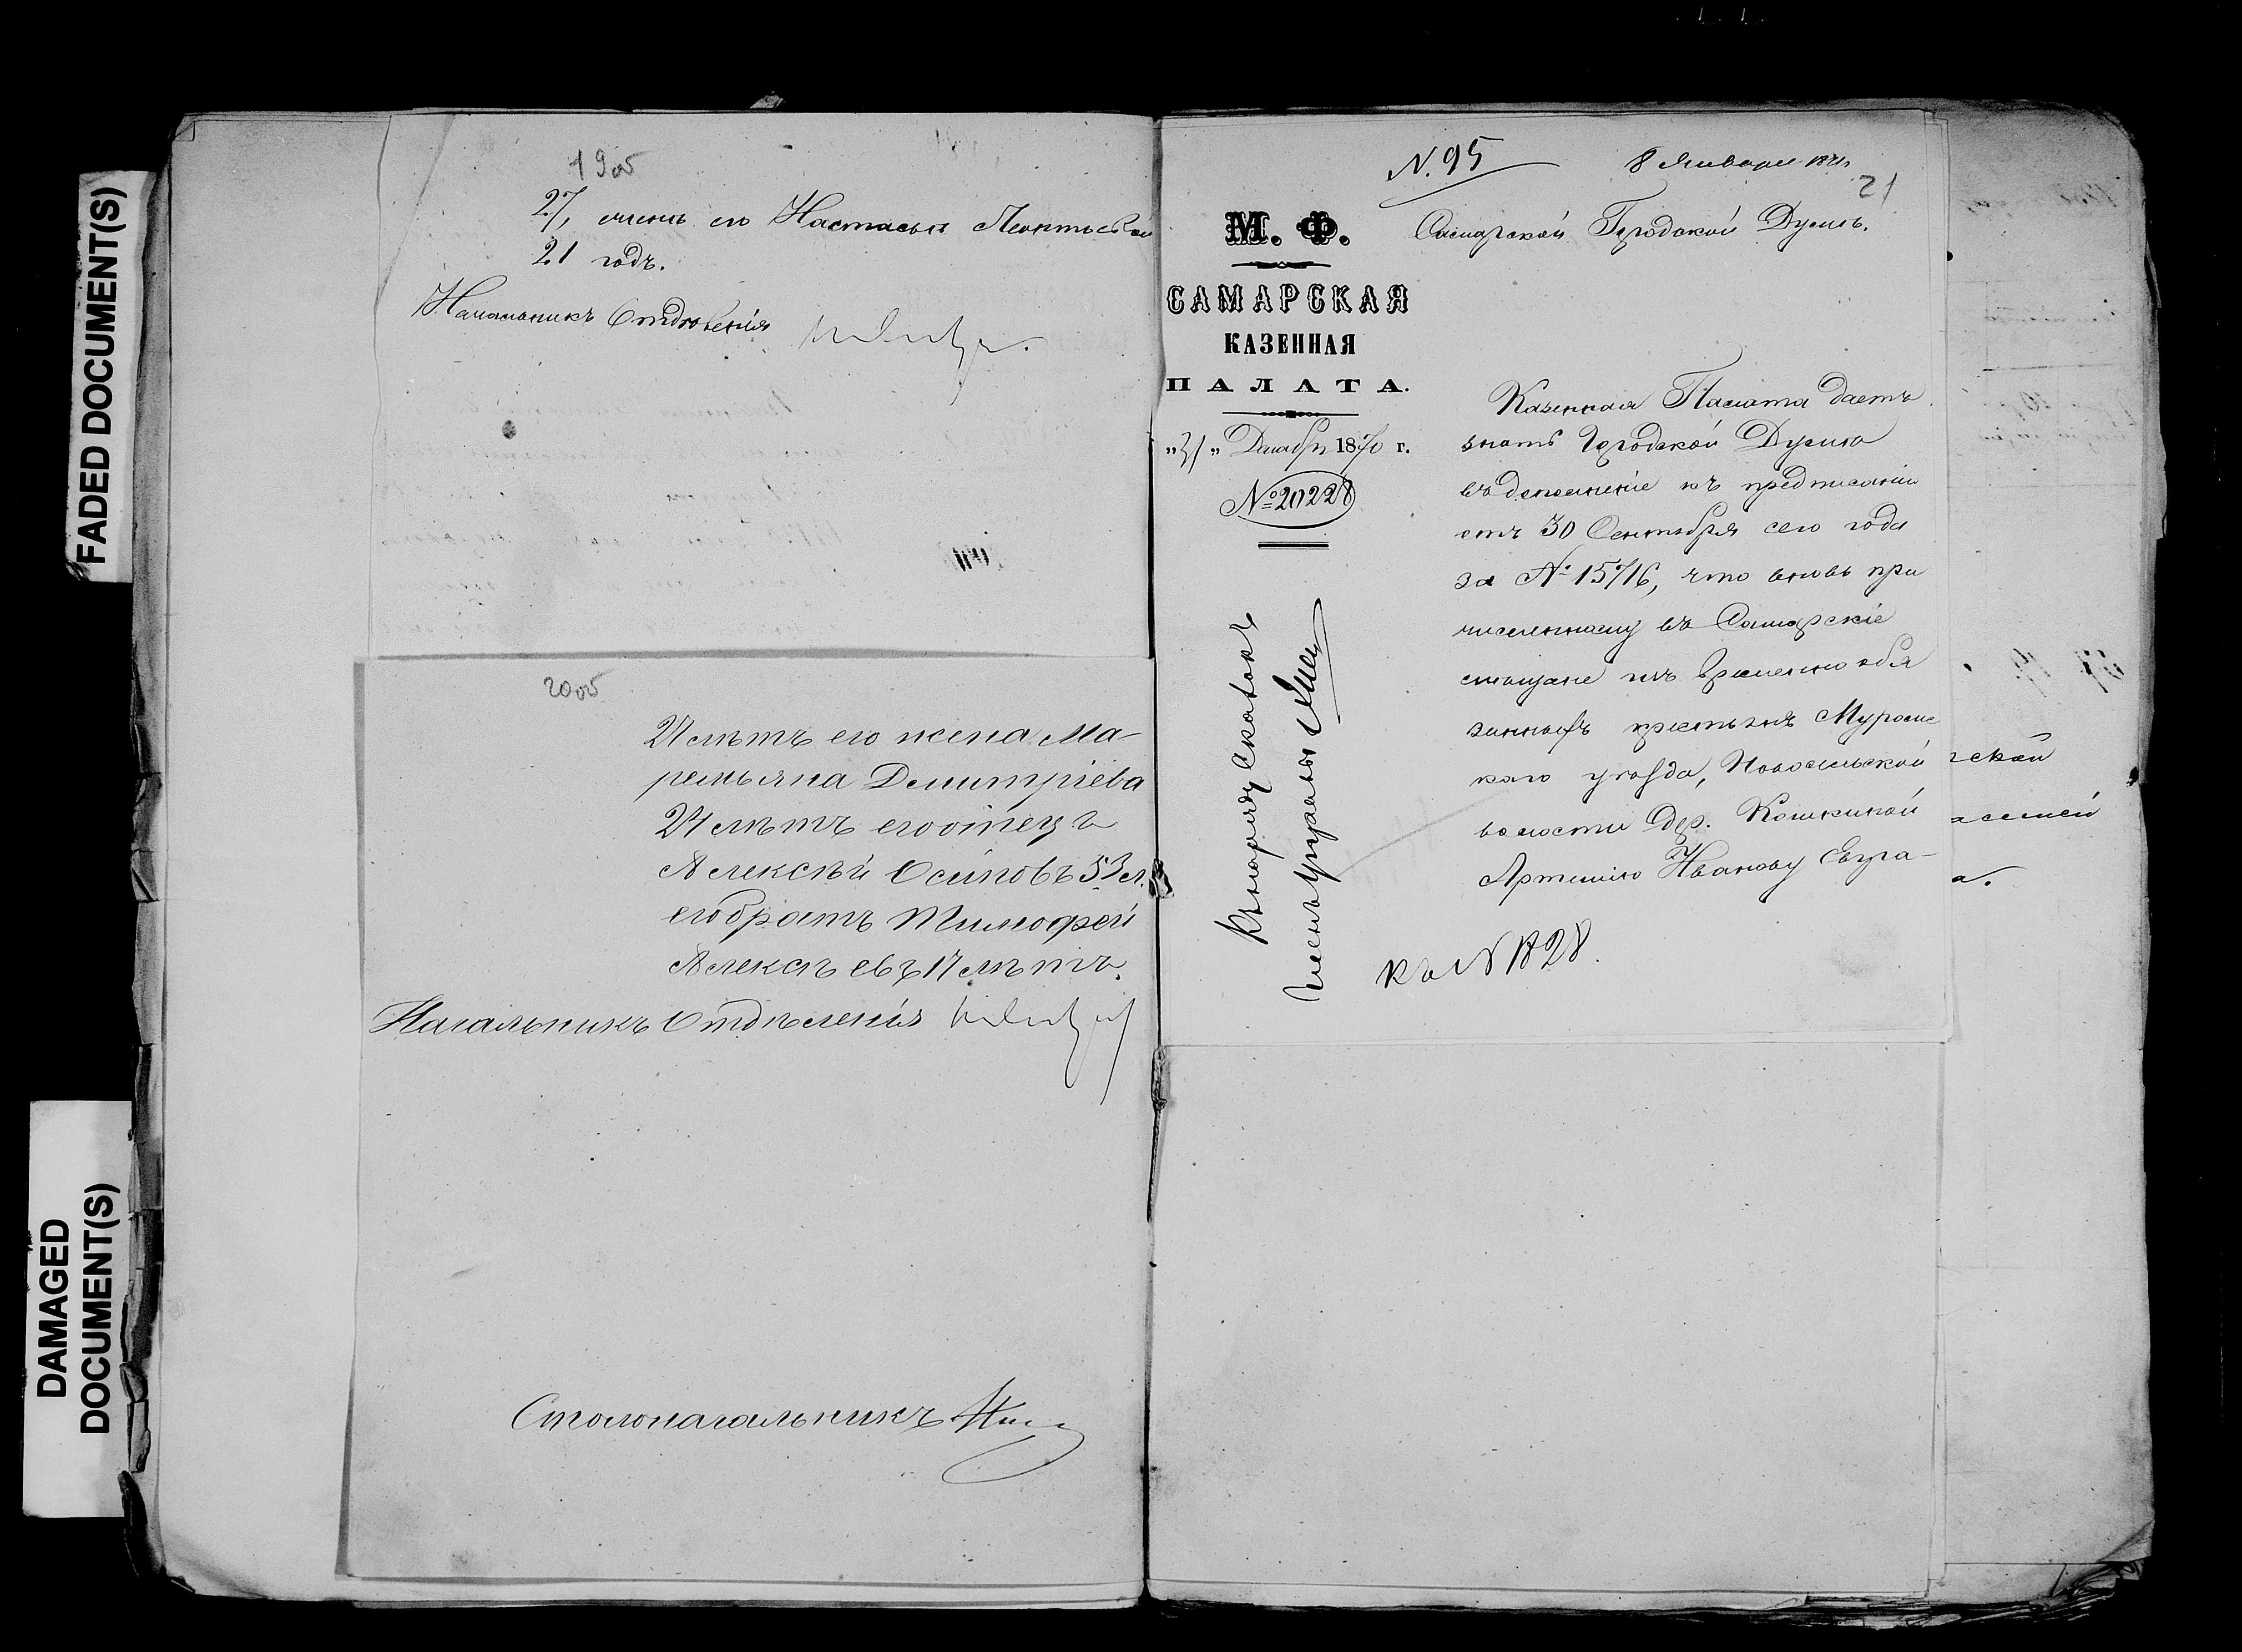 FADED DOCUMENT(S)
DAMAGED
DOCUMENT(S)
19об
27, жена его Настасья Леонтьева
21 годъ.
Начальникъ Отдѣленія
20об
21 лѣтъ его жена Ма-
ремьяна Демитріева
24 лѣтъ его отецъ
Алексѣй Осиповъ 53 л.
его братъ Тимофей
Алексѣевъ 17 лѣтъ.
Начальникъ Отдѣленія
Столоначальникъ
N. 95
8 Января 1871
21
М. Ф.
САМАРСКАЯ
КАЗЕННАЯ
ПАЛАТА.
„31„ Декабря 1870 г.
№ 20228
Самарской Городской Думѣ.
Казенная Палата даетъ
знать Городской Думѣ
въ дополненіе къ предписанію
отъ 30 Сентября сего года
за № 15716, что вновь при
численному въ Самарскіе
мѣщане изъ временно обя
занныхъ крестьянъ Муромс
каго уѣзда, Новосельской
волости дер. Кошкиной
Артемію Иванову
къ N 1828.
ской